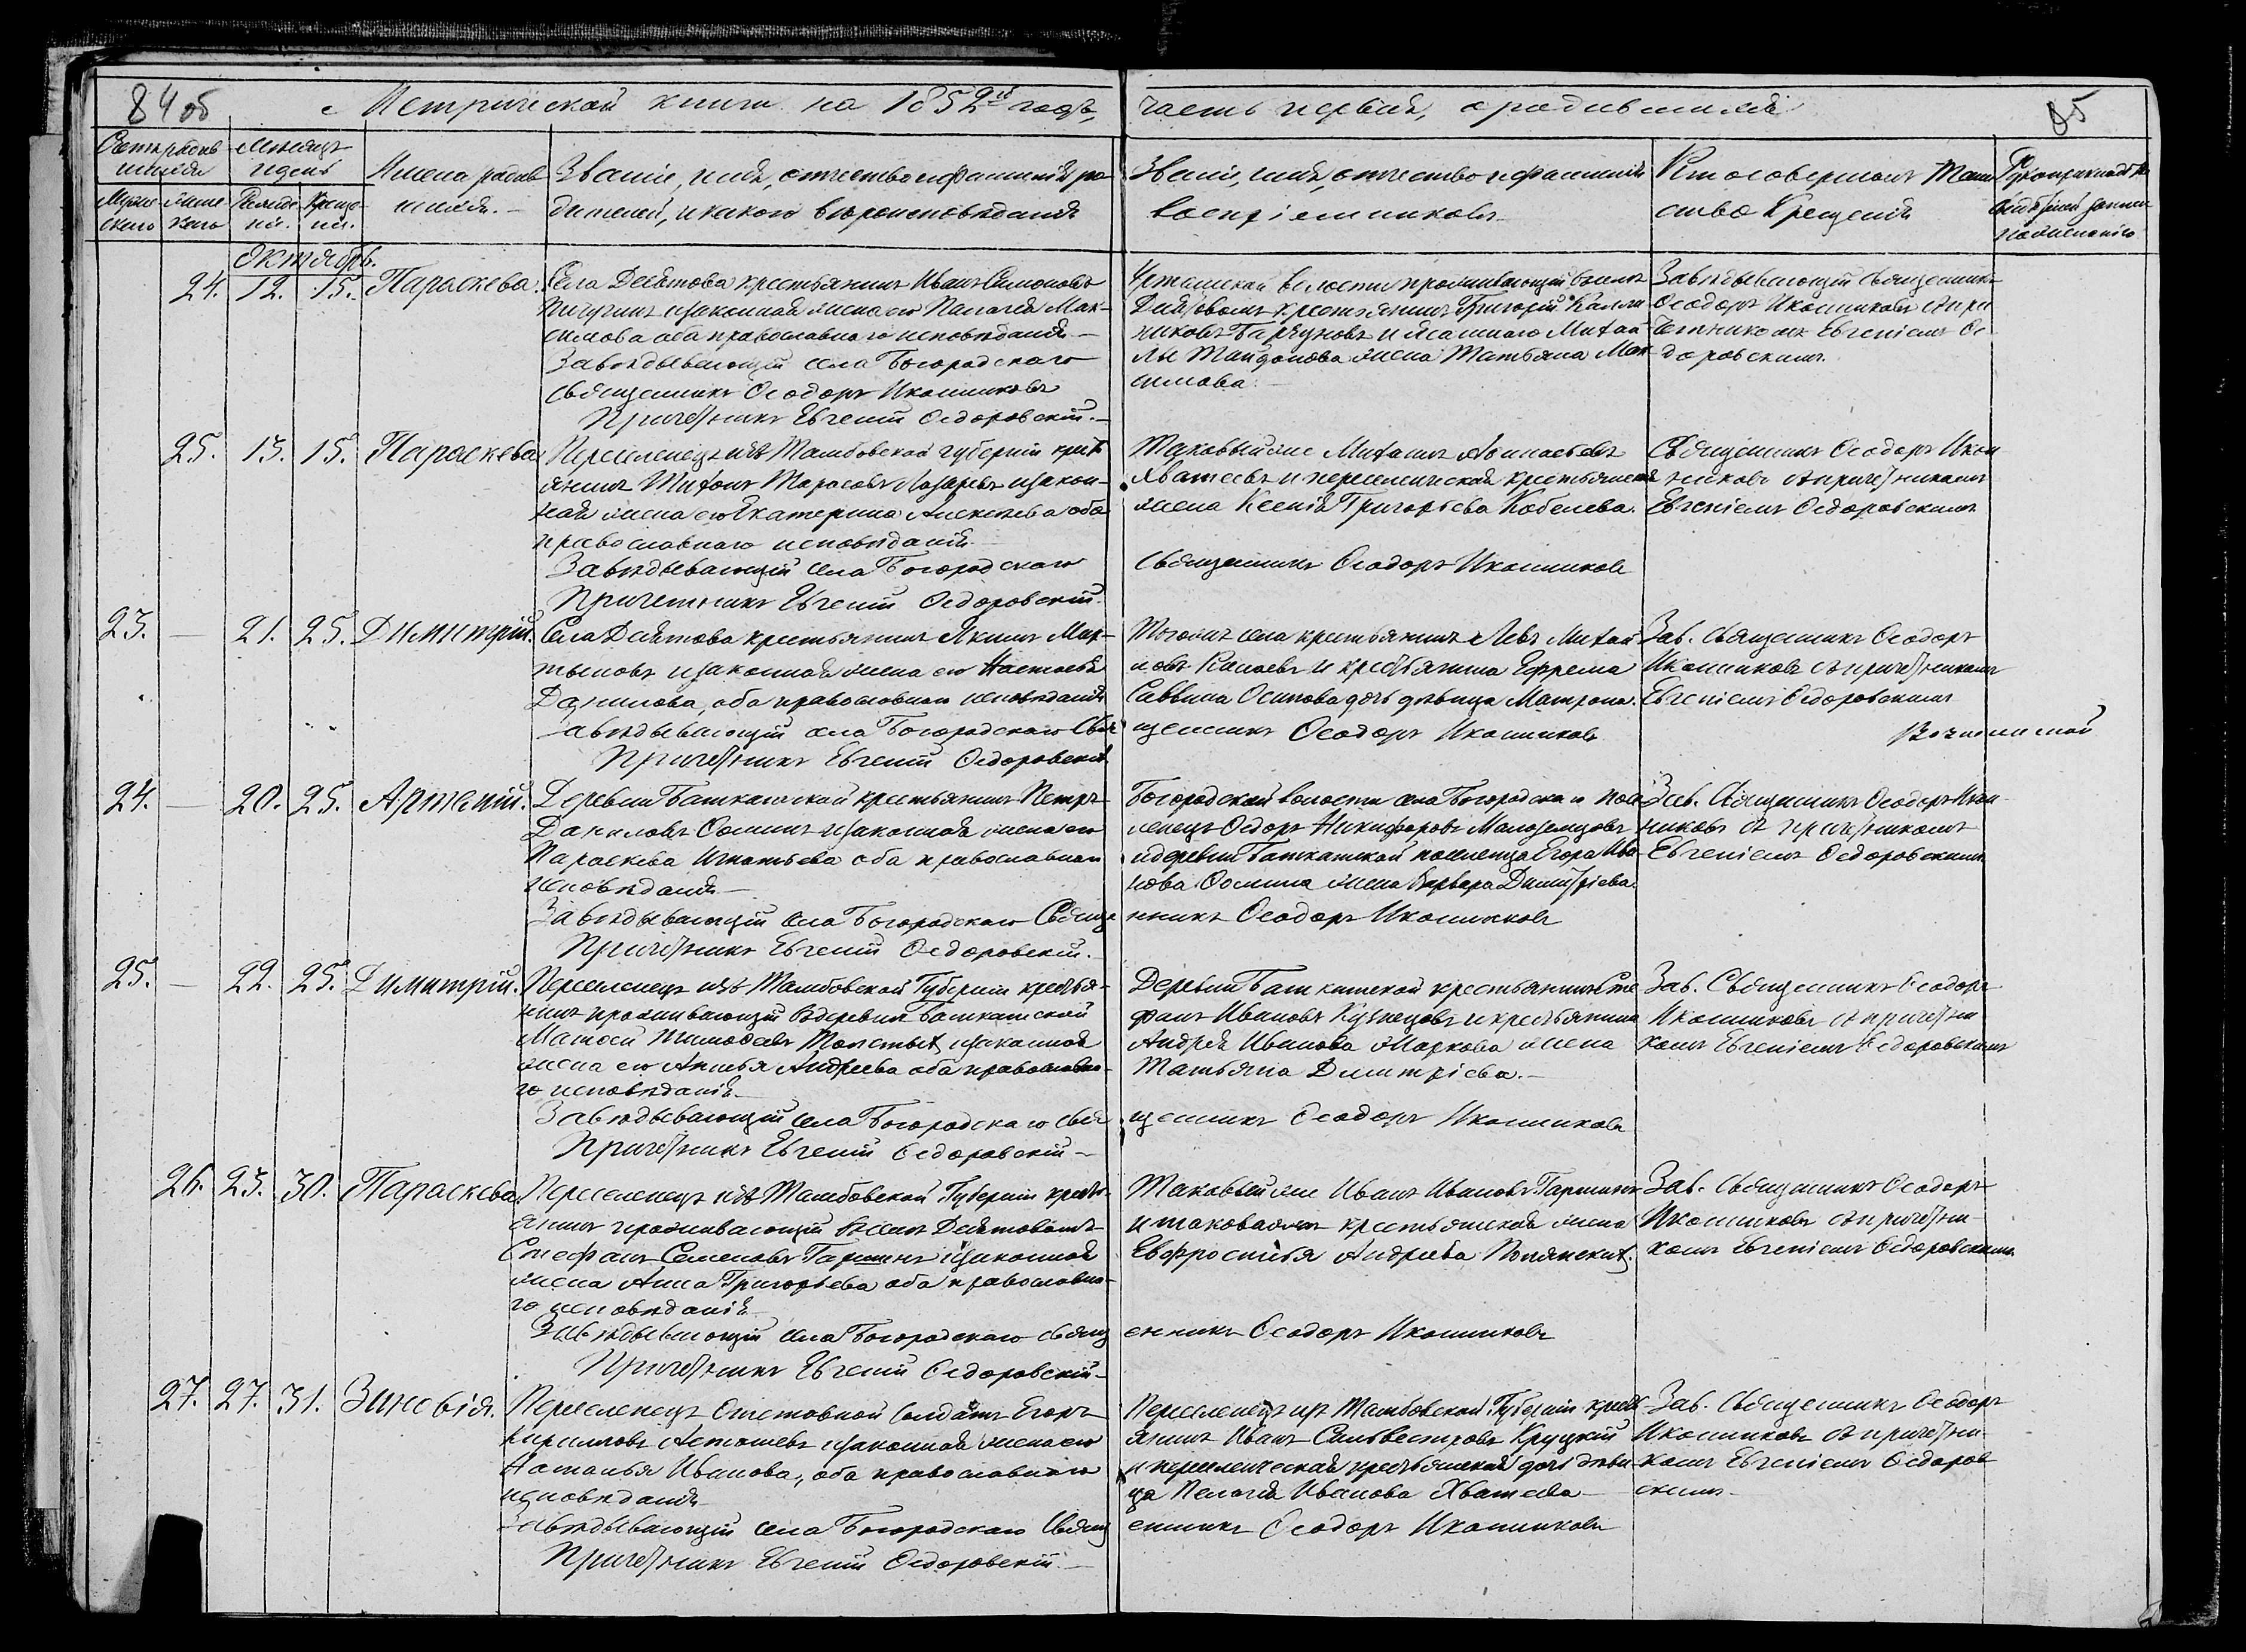 84 об
Метрической книги на 1852й годъ,
часть первая, о родившихся
85
Счетъ родившихся
Месяцъ и день
Имена родившихся.
Званіе, имя, отчество и фамилія ро-
дителей, и какого вероисповѣданія
Званіе, имя, отчество и фамилія
воспріемниковъ
Кто совершалъ Таин-
ство Крещенія
Рукоприкладство
свидѣтелей записи
по желанію
Мужеска
Женска
Рожде-
нія.
Креще-
нія.
Октябрь.
24. 12. 15. Параскева.
Села Десятова крестьянинъ Иванъ Симоновъ
Пичугинъ и законная жена его Пелагея Мак-
симова оба православнаго исповѣданія
Завѣдывающій села Богородскаго
Священникъ Ѳеодоръ Иконниковъ
Причетникъ Евгеній Ѳедоровскій.
волости проживающій въ селѣ
Десятовомъ крестьянинъ Григорій
и ясашнаго Михаи-
лы Тайдонова жена Татьяна Мак-
симова.
Завѣдывающій Священникъ
Ѳеодоръ Иконниковъ съ при-
четникомъ Евгеніемъ Ѳе-
доровскимъ.
25. 13. 15. Параскева
Переселенецъ изъ Тамбовской губерніи крест-
янинъ Тихонъ Тарасовъ Лазаревъ и закон-
ная жена его Екатерина Алексѣева оба
православнаго исповѣданія
Завѣдывающій села Богородскаго
Причетникъ Евгеній Ѳедоровскій.
Таковый же Михаилъ
Хватеевъ и переселенческая крестьянская
жена Ксенія Григорьева Кобелева.
Священникъ Ѳеодоръ Иконниковъ
Священникъ Ѳеодоръ Икон-
никовъ съ причетникомъ
Евгеніемъ Ѳедоровскимъ
23. — 21. 25. Димитрій.
Села Десятова крестьянинъ Якимъ Мар-
тыновъ и законная жена его Настасья
Данилова, оба православнаго исповѣданія
Завѣдывающій села Богородскаго Свя-
Причетникъ Евгеній Ѳедоровскій
Того же села крестьянинъ Левъ Михаи-
ловъ Канаевъ и крестьянина Ефрема
Саввина Осипова дочь дѣвица Матрона.
щенникъ Ѳеодоръ Иконниковъ
Зав. Священникъ Ѳеодоръ
Иконниковъ съ причетникомъ
Евгеніемъ Ѳедоровскимъ
24. — 20. 25. Артемій.
Деревни Баткатской крестьянинъ Петръ
Даниловъ Ѳоминъ и законная жена его
Параскева Игнатьева оба православнаго
исповѣданія
Завѣдывающій села Богородскаго Свяще-
Причетникъ Евгеній Ѳедоровскій.
Богородской волости села Богородскаго посе-
ленецъ Ѳедоръ Никифоровъ Малоземцовъ
и деревни Баткатской поселенца Егора Ива-
нова Ѳомина жена Варвара Димитріева.
нникъ Ѳеодоръ Иконниковъ
Зав. Священникъ Ѳеодоръ Икон-
никовъ съ причетникомъ
Евгеніемъ Ѳедоровскимъ
25. — 22. 25. Димитрій.
Переселенецъ изъ Тамбовской Губерніи крестья-
нинъ проживающій въ деревнѣ Баткатской
Матѳей Тимоѳеевъ Толстыхъ и законная
жена его Анисья Андреева оба православна-
го исповѣданія
Завѣдывающій села Богородскаго Свя-
Причетникъ Евгеній Ѳедоровскій
Деревни Баткатской крестьянинъ Сте-
фанъ Ивановъ Кузнецовъ и крестьянина
Андрея Иванова Маркова жена
Татьяна Димитріева.
щенникъ Ѳеодоръ Иконниковъ
Зав. Священникъ Ѳеодоръ
Иконниковъ съ причетни-
комъ Евгеніемъ Ѳедоровскимъ
26. 23. 30. Параскева
Переселенецъ изъ Тамбовской Губерніи кресть-
янинъ проживающій въ селѣ Десятовомъ
Стефанъ Семеновъ Паршинъ и законная
жена Анна Григорьева оба православна-
го исповѣданія
Завѣдывающій села Богородскаго Свящ-
Причетникъ Евгеній Ѳедоровскій
Таковый же Иванъ Ивановъ Паршинъ
и таковая же крестьянская жена
Евфросинья Андреева
енникъ Ѳеодоръ Иконниковъ
Зав. Священникъ Ѳеодоръ
Иконниковъ съ причетни-
комъ Евгеніемъ Ѳедоровскимъ
27. 27. 31. Зиновія.
Переселенецъ Отставной Солдатъ Егоръ
Кирилловъ и законная жена его
Наталья Иванова, оба православнаго
исповѣданія
Завѣдывающій села Богородскаго Свящ-
Причетникъ Евгеній Ѳедоровскій
Переселенецъ изъ Тамбовской Губерніи кресть-
янинъ Иванъ Сильвестровъ Круцкій
и переселенческая крестьянская дочь дѣви-
ца Пелагія Иванова Хватеева
енникъ Ѳеодоръ Иконниковъ
Зав. Священникъ Ѳеодоръ
Иконниковъ съ причетни-
комъ Евгеніемъ Ѳедоров-
скимъ